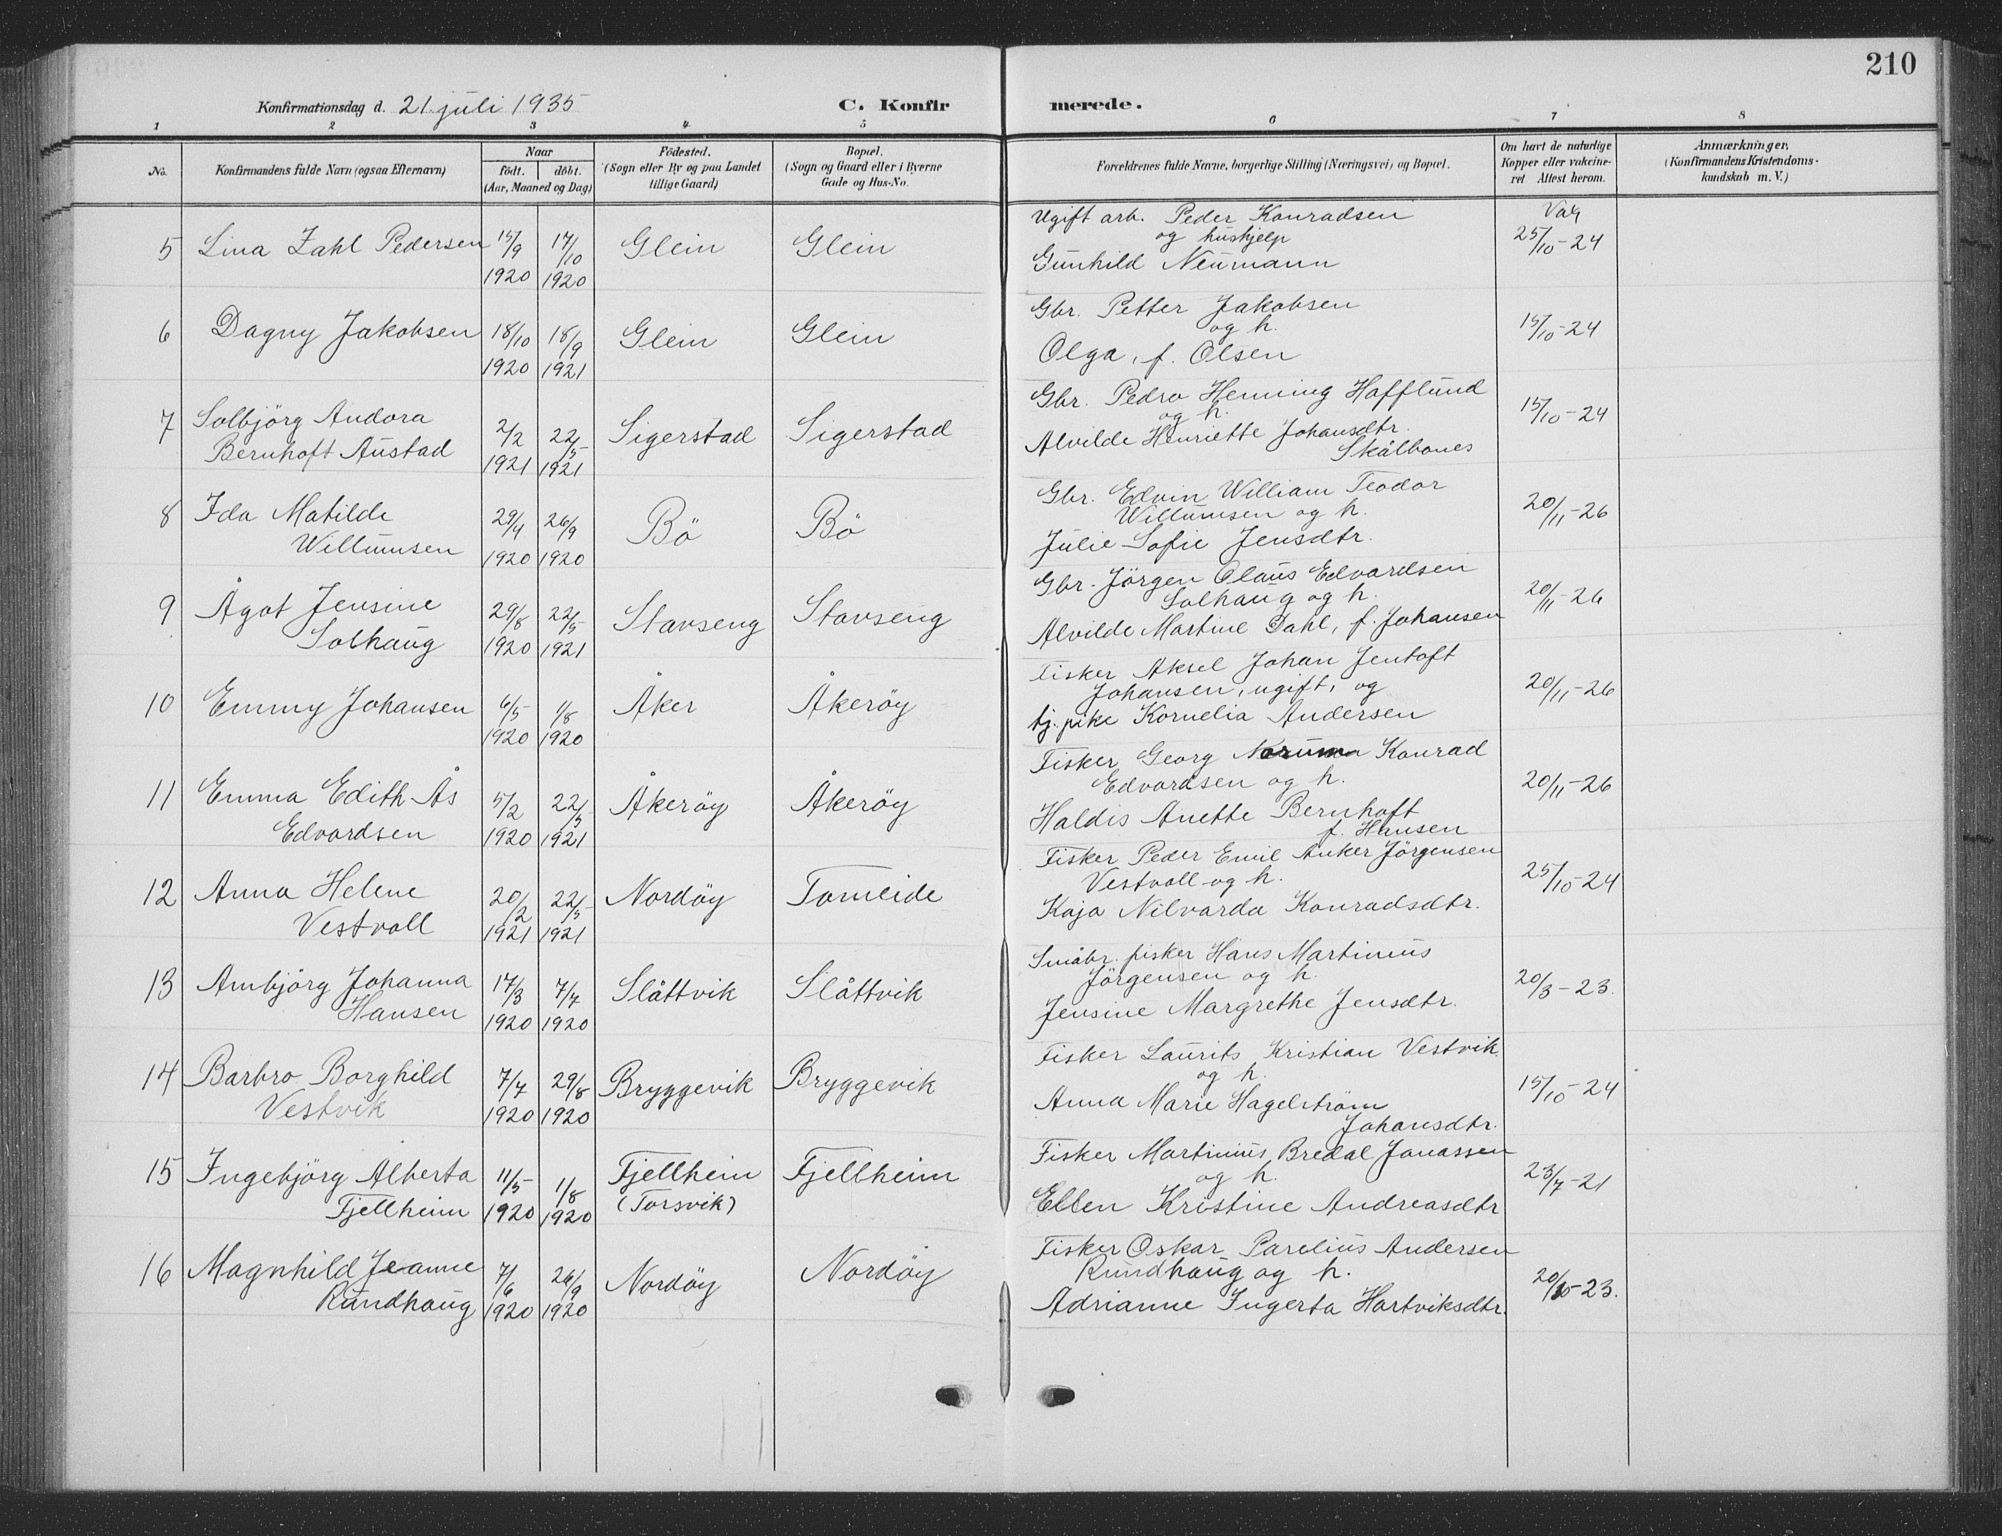 210
Konfirmationsdag d. 21. juli 1935
C. Konfirmerede.
1 2 3 4 5 6 7 8
No. Konfirmandens fulde Navn (ogsaa Efternavn) Naar født. døbt. (Aar, Maaned og Dag) Fødested. (Sogn eller By og paa Landet tillige Gaard) Bopæl. (Sogn og Gaard eller i Byerne Gade og Hus-No. Forældrenes fulde Navne, borgerlige Stilling (Næringsvei) og Bopæl. Om havt de naturlige Kopper eller vakcineret Attest herom. Anmærkninger. (Konfirmandens Kristendomskundskab m. V.)
5 Lina Zahl Pedersen 15/9 1920 17/10 1920 Glein Glein Ugift arb. Peder Konradsen Vac
og hushjelp 25/10-24
Gunhild Neumann
6 Dagny Jakobsen 18/10 1920 18/9 1921 Glein Glein Gbr. Petter Jakobsen
og h. 15/10-24
Olga, f. Olsen
7 Solbjörg Andora 2/2 1921 22/5 1921 Sigerstad Sigerstad Gbr. Pedro Henning Hafflund
Bernhoft Austad og h. 15/10-24
Alvilde Henriette Johansdtr.
Skålbones
8 Ida Matilde 29/4 1920 26/9 1920 Bö Bö Gbr. Edvin William Teodor
Willumsen Willumsen og h. 20/11-26
Julie Sofie Jensdtr.
9 Ågot Jensine 29/8 1920 22/5 1921 Stavseng Stavseng Gbr. Jörgen Olaus Edvardsen
Solhaug Solhaug og h. 20/11-26
Alvilde Martine Dahl, f. Johansen
10 Emmy Johansen 6/5 1920 1/8 1920 Åker Åkerøy Fisker Aksel Johan Jentoft
Johansen, ugift, og 20/11-26
tj. pike Kornelia Andersen
11 Emma Edith Ås 5/2 1920 22/5 1921 Åkerøy Åkerøy Fisker Georg Konrad
Edvardsen Edvardsen og h. 20/11-26
Haldis Anette Bernhoft
f. Hansen
12 Anna Helene 20/2 1921 22/5 1921 Nordöy Tomeide Fisker Peder Emil Anker Jörgensen
Vestvoll Vestvoll og h. 25/10-24
Kaja Nilvarda Konradsdtr.
13 Arnbjörg Johanna 17/3 1920 7/7 1920 Slåttvik Slåttvik Småbr. fisker Hans Martinius
Hansen Jörgensen og h. 20/3-23.
Jensine Margrethe Jensdtr.
14 Barbro Borghild 7/7 1920 29/8 1920 Bryggevik Bryggevik Fisker Laurits Kristian Vestvik
Vestvik og h. 15/10-24
Anna Marie Hagelström
Johansdtr.
15 Ingebjörg Alberta 11/5 1920 1/8 1920 Fjellheim Fjellheim Fisker Martinius Bredal Jonassen
Fjellheim (Torsvik) og h. 23/7-21
Ellen Kristine Andreasdtr
16 Magnhild Jeanne 7/6 1920 26/9 1920 Nordöy Nordöy Fisker Oskar Parelius Andersen
Rundhaug Rundhaug og h. 20/10-23.
Adrianne Ingerta Hartviksdtr.